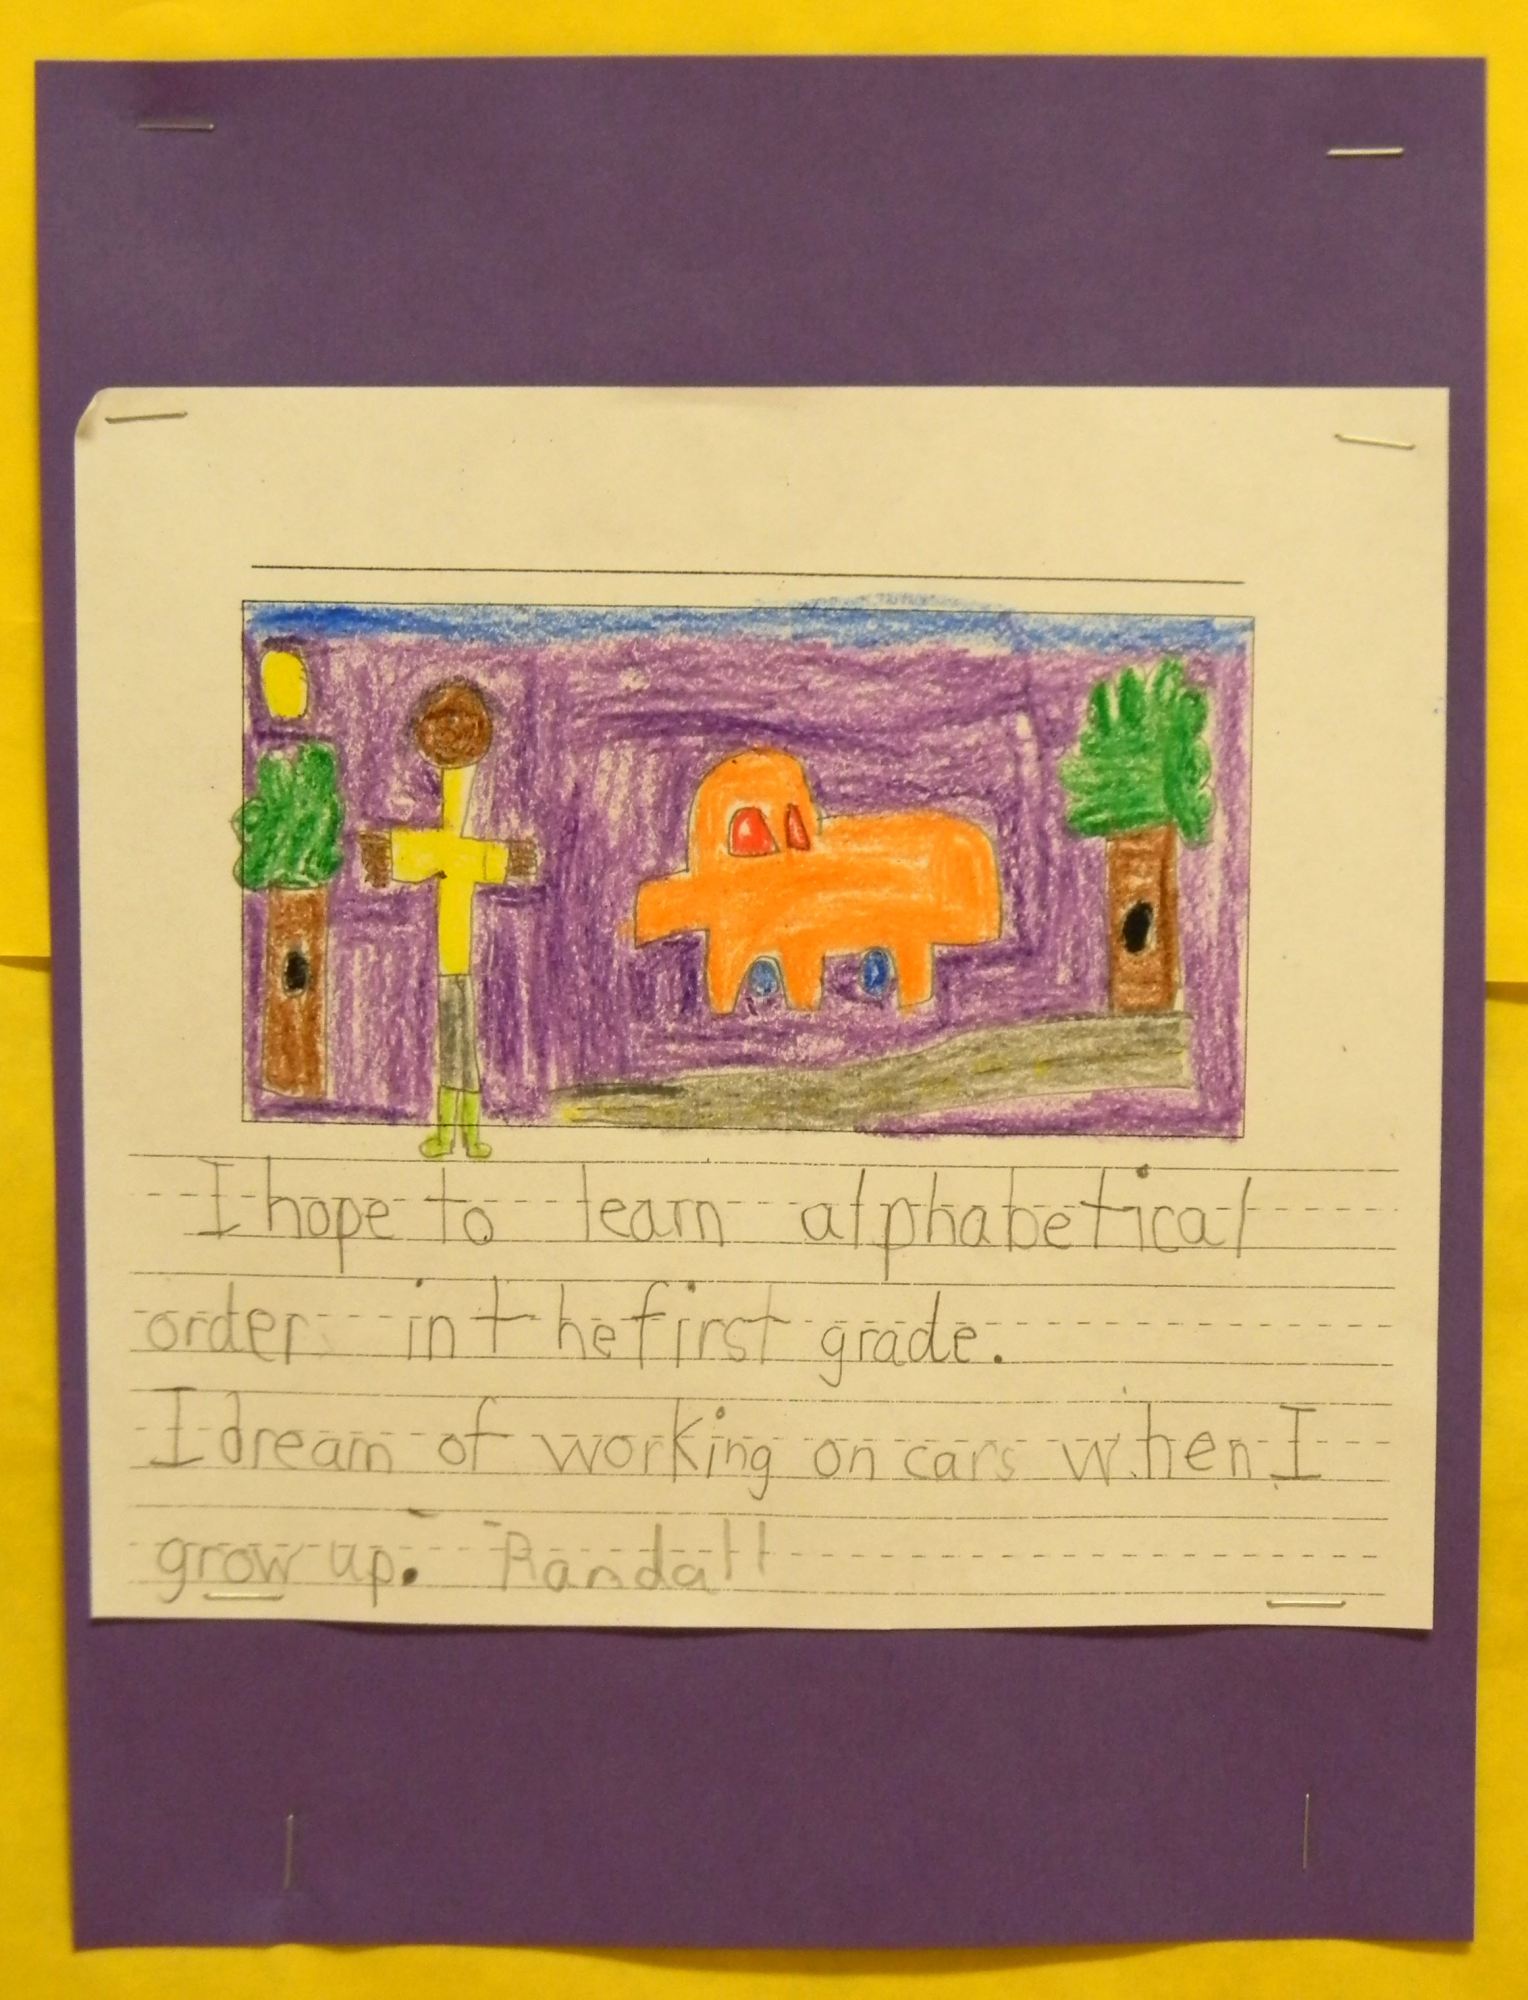 I hope to learn alphabetical
order in the first grade.
I dream of working on cars when I
grow up. Randall